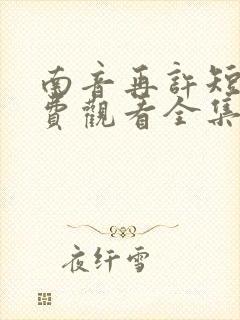 南音再許短
費觀看全集
夜纤雪